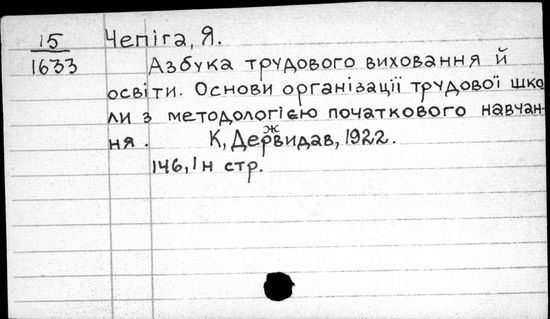 15
1633
Чепіга, Я.
Азбука трудового виховання й
освіти. Основи організації трудової шко
ли з методологією початкового навчан-
ня. К, Держвидав, 1922.
146, 1н стр.